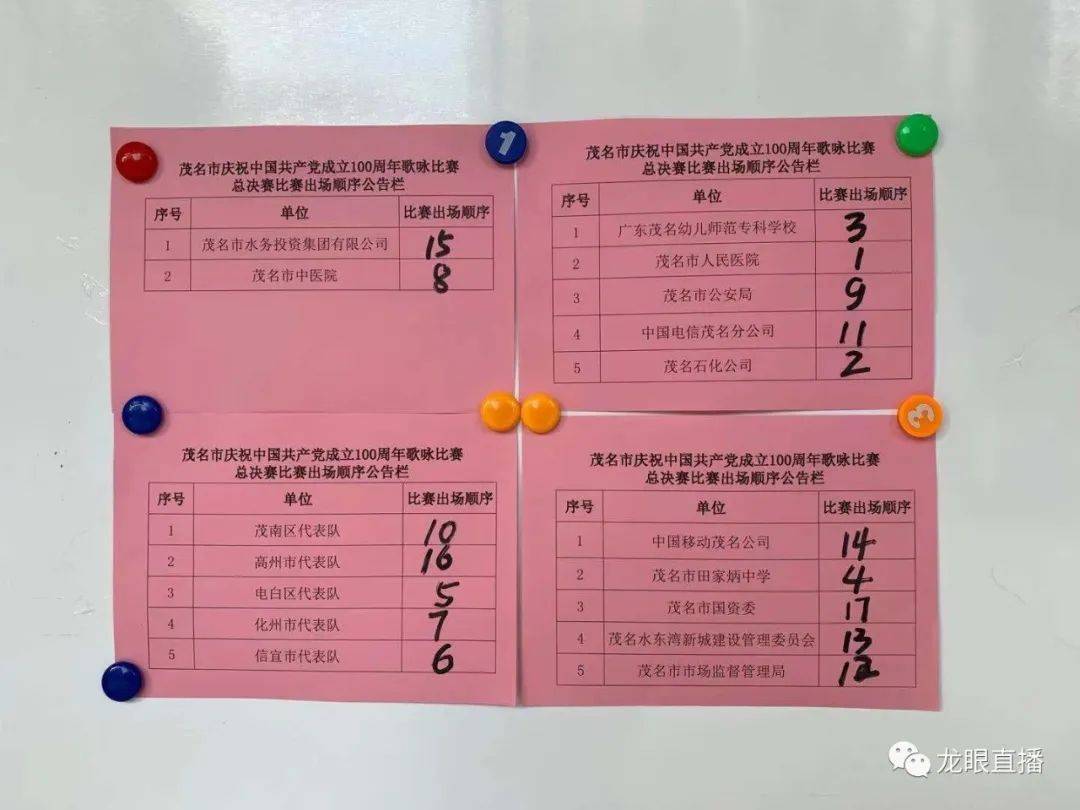 茂名市庆祝中国共产党成立100周年歌咏比赛
总决赛比赛出场顺序公告栏
序号 单位 比赛出场顺序
1 茂名市水务投资集团有限公司 15
2 茂名市中医院 8
1
茂名市庆祝中国共产党成立100周年歌咏比赛
总决赛比赛出场顺序公告栏
序号 单位 比赛出场顺序
1 广东茂名幼儿师范专科学校 3
2 茂名市人民医院 1
3 茂名市公安局 9
4 中国电信茂名分公司 11
5 茂名石化公司 2
茂名市庆祝中国共产党成立100周年歌咏比赛
总决赛比赛出场顺序公告栏
序号 单位 比赛出场顺序
1 茂南区代表队 10
2 高州市代表队 16
3 电白区代表队 5
4 化州市代表队 7
5 信宜市代表队 6
3
茂名市庆祝中国共产党成立100周年歌咏比赛
总决赛比赛出场顺序公告栏
序号 单位 比赛出场顺序
1 中国移动茂名公司 14
2 茂名市田家炳中学 4
3 茂名市国资委 17
4 茂名水东湾新城建设管理委员会 13
5 茂名市市场监督管理局 12
龙眼直播